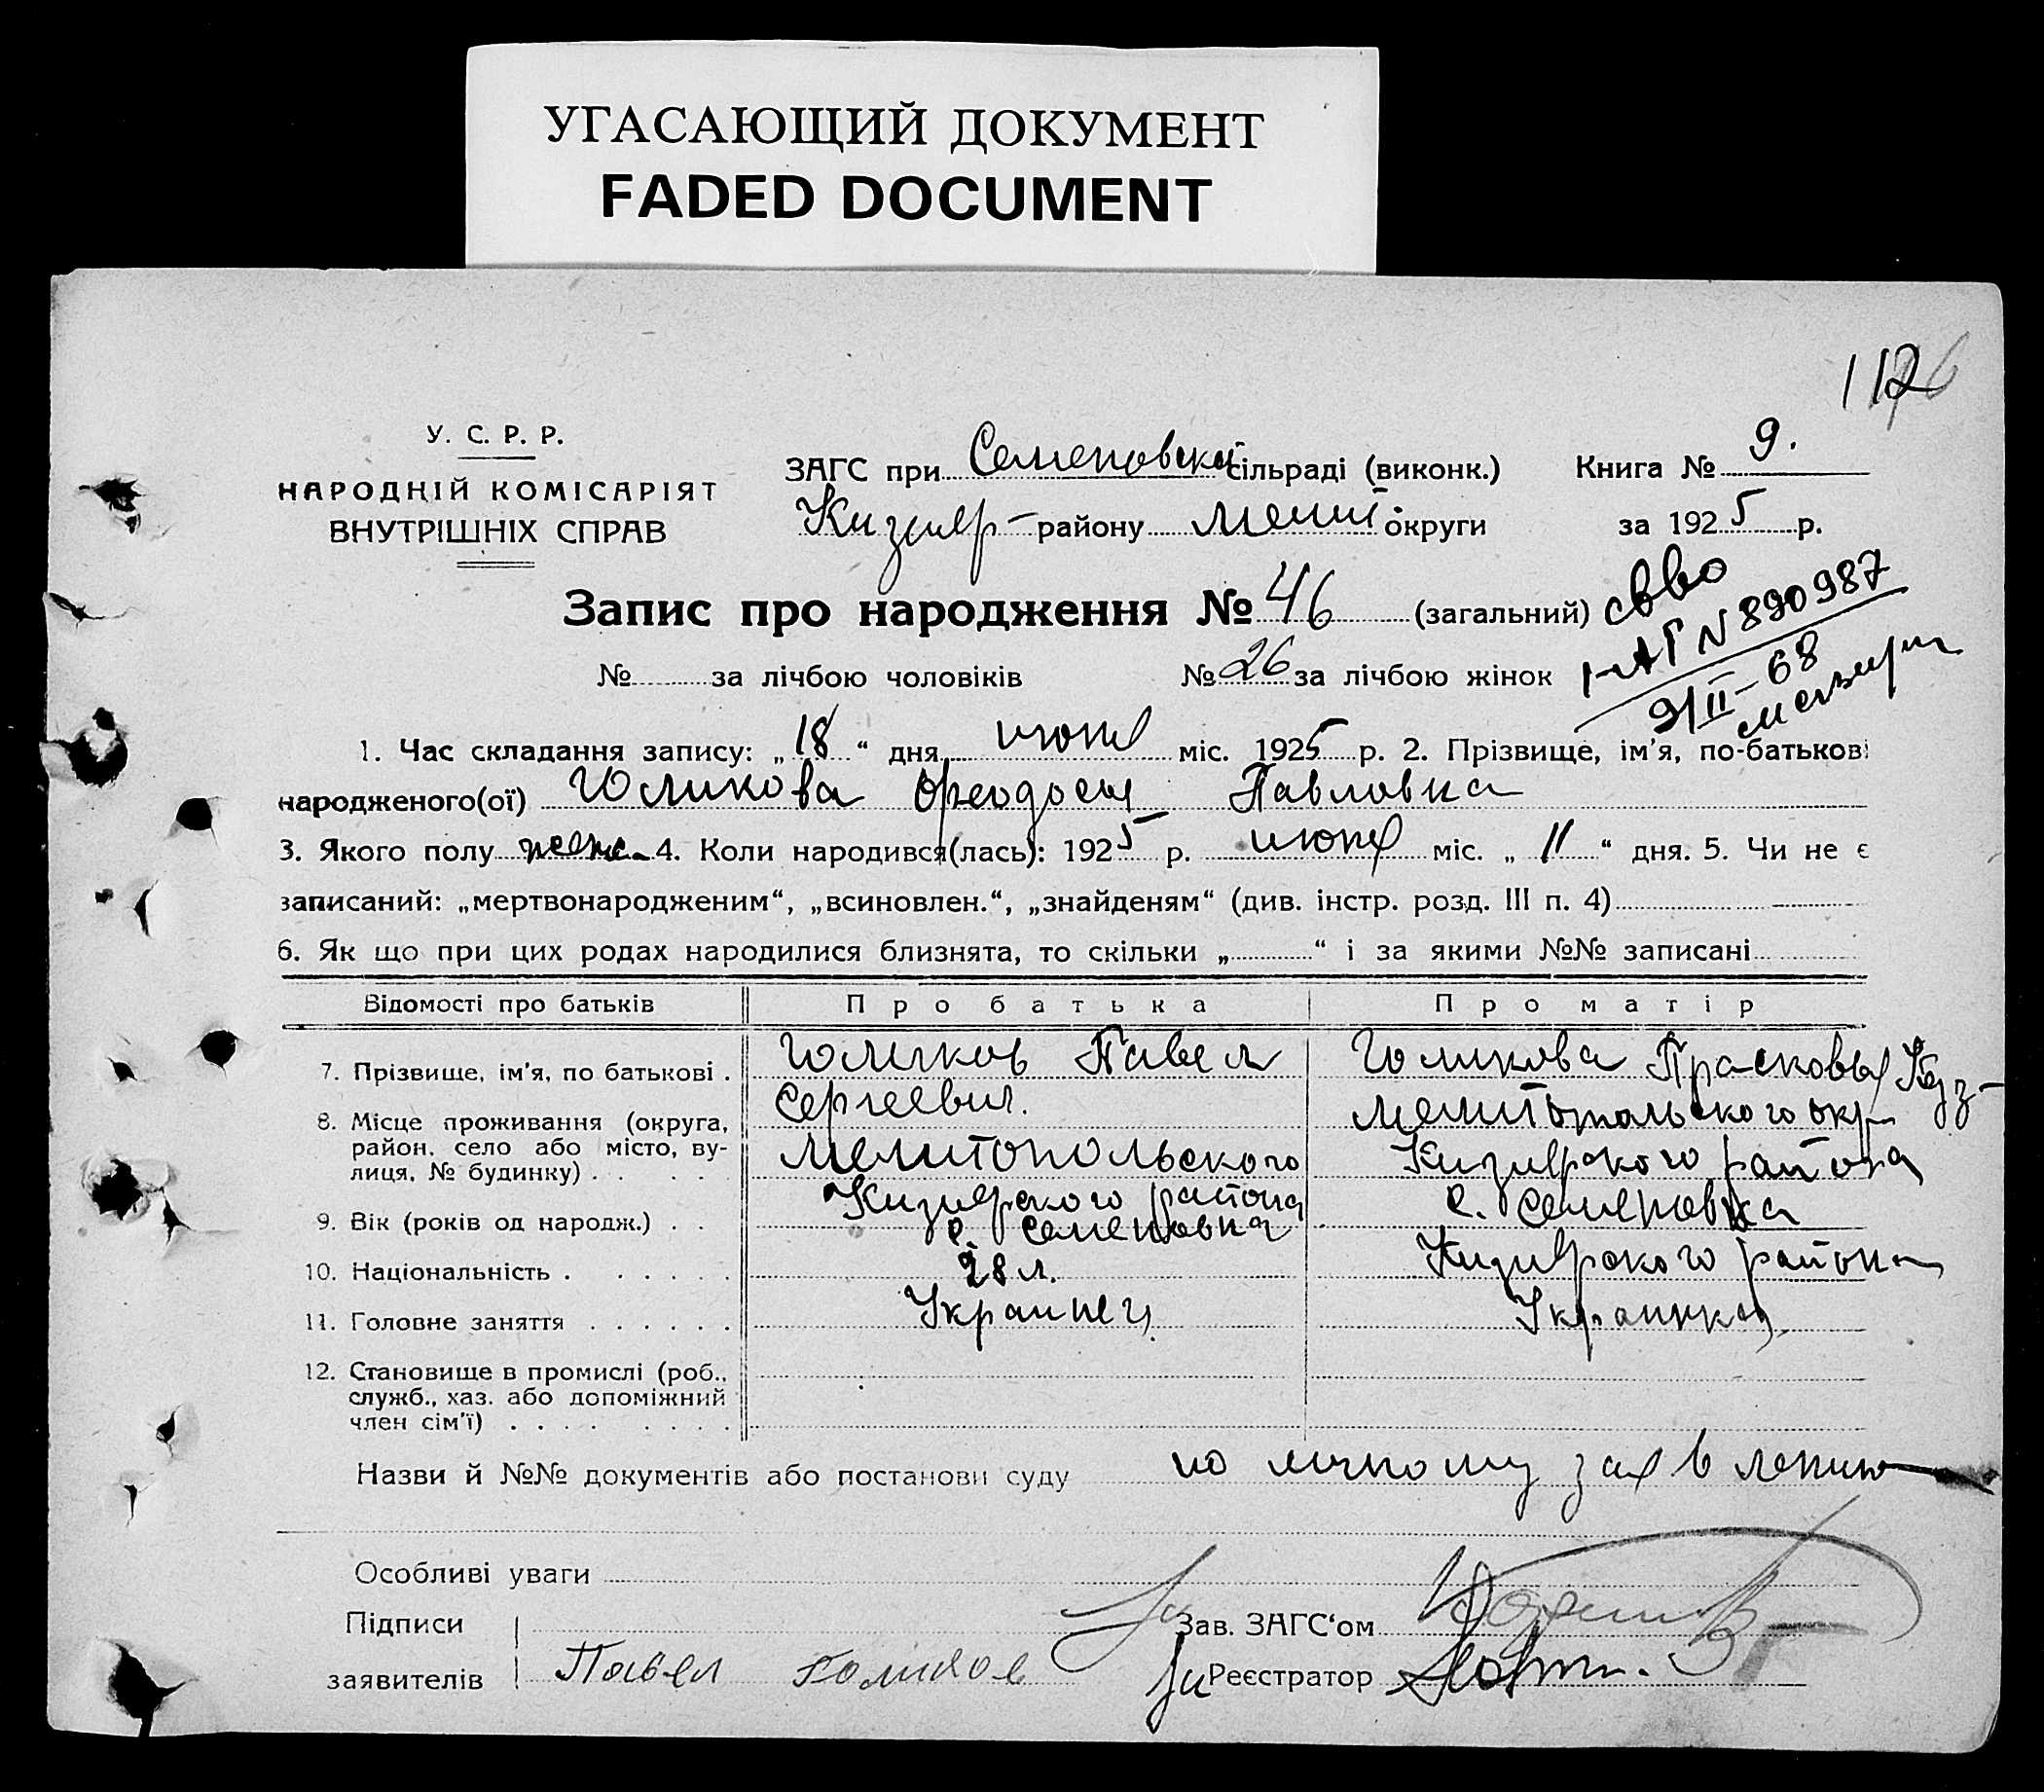 УГАСАЮЩИЙ ДОКУМЕНТ
FADED DOCUMENT
У. С. Р. Р.
НАРОДНІЙ КОМІСАРІЯТ
ВНУТРІШНІХ СПРАВ
ЗАГС при Семеновской сільраді (виконк.)
Кизияр- району Мелит. округи
Книга № 9.
за 1925 р.
Запис про народження № 46 (загальний)
№ за лічбою чоловіків № 26 за лічбою жінок
свво
I-АГ N 890987
9/II-68
1. Час складання запису: „18“ дня июня міс. 1925 р. 2. Прізвище, ім'я, по-батькові
народженого(ої) Голикова Феодосья Павловна
3. Якого полу женс. 4. Коли народився(лась): 1925 р. июня міс. „11“ дня. 5. Чи не є
записаний: „мертвонародженим“, „всиновлен.“, „знайденям“ (див. інстр. розд. III п. 4)
6. Як що при цих родах народилися близнята, то скільки „ “ і за якими №№ записані
Відомості про батьків Про батька Про матір
7. Прізвище, ім'я, по батькові . Голиков Павел Сергеевич. Голикова Прасковья Куз-
8. Місце проживання (округа,
район, село або місто, ву-
лиця, № будинку) . . . . .
Мелитопольского
Кизиярского района
с. Семеновка
Мелитопольского окр.
Кизиярского района
с. Семеновка
9. Вік (років од народж.) . .
28 л.
Кизиярского района
10. Національність . . . . . .
Украинец
Украинка
11. Головне заняття . . . . . .
12. Становище в промислі (роб.,
служб., хаз. або допоміжний
член сім'ї) . . . . . . . .
Назви й №№ документів або постанови суду по личному заявлению
Особливі уваги
Підписи Зав. ЗАГС'ом
заявителів Павел Голиков Реєстратор